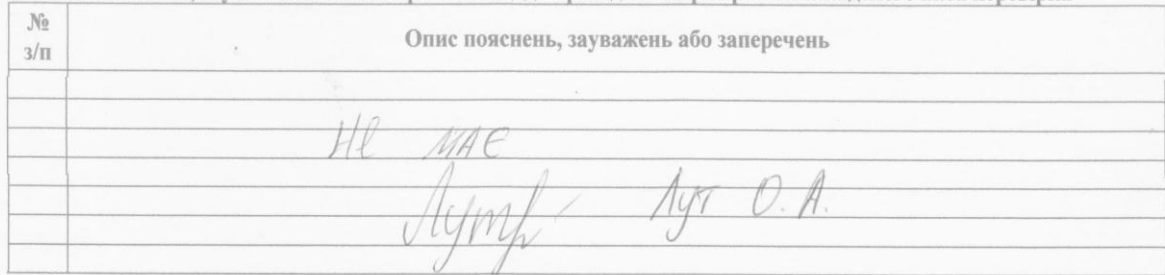 №
з/п
Опис пояснень, зауважень або заперечень
Не має
Лут О. А.